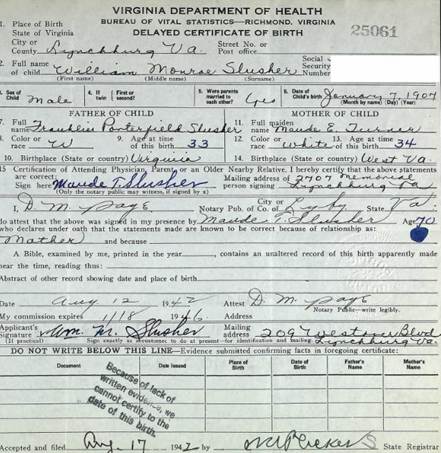 VIRGINIA DEPARTMENT OF HEALTH
BUREAU OF VITAL STATISTICS—RICHMOND, VIRGINIA
DELAYED CERTIFICATE OF BIRTH
25061
1. Place of Birth
State of Virginia
City or County Lynchburg Va. Street No. or Post office
2. Full name of child William Monroe Slusher Social Security Number
(First name) (Middle name) (Surname)
3. Sex of Child Male 4. If twin 5. Were parents married to each other? Yes 6. Date of Child's birth January 7, 1904
(Month by name) (Day) (Year)
FATHER OF CHILD MOTHER OF CHILD
7. Full name Franklin Porterfield Slusher 11. Full maiden name Maude E. Turner
8. Color or race W 9. Age at time of this birth 33 12. Color or race White 13. Age at time of this birth 34
10. Birthplace (State or Country) Virginia 14. Birthplace (State or Country) West Va.
15 Certification of Attending Physician, Parent, or an Older Nearby Relative, I hereby certify that the above statements are correct:
Sign here Maude T. Slusher Mailing address of person signing 2707 Memorial Lynchburg Va
(Only the notary public may witness, if signed by x)
I, D. M. Page Notary Pub. of City or County Lybg State Va.
do attest that the above was signed in my presence by Maude T. Slusher Age 70
who declares under oath that the statements made are known to be correct because of relationship as:
Mother and because
A Bible, examined by me, printed in the year, contains an unaltered record of this birth apparently made
near the time, reading thus:
Abstract of other record showing date and place of birth.
Date Aug 12 1942 Attest D. M. Page
My commission expires 1/18 1946 Notary Public—write legibly.
Applicant's Signature Wm. M. Slusher Mailing address 2097 Blvd Lynchburg Va.
DO NOT WRITE BELOW THIS LINE—Evidence submitted confirming facts in foregoing certificate:
Document Date Issued Place of Birth Date of Birth Father's Name Mother's Name
Because of lack of
written evidence, we
cannot certify to the
date of this birth.
Accepted and filed Aug. 17 1942 by State Registrar